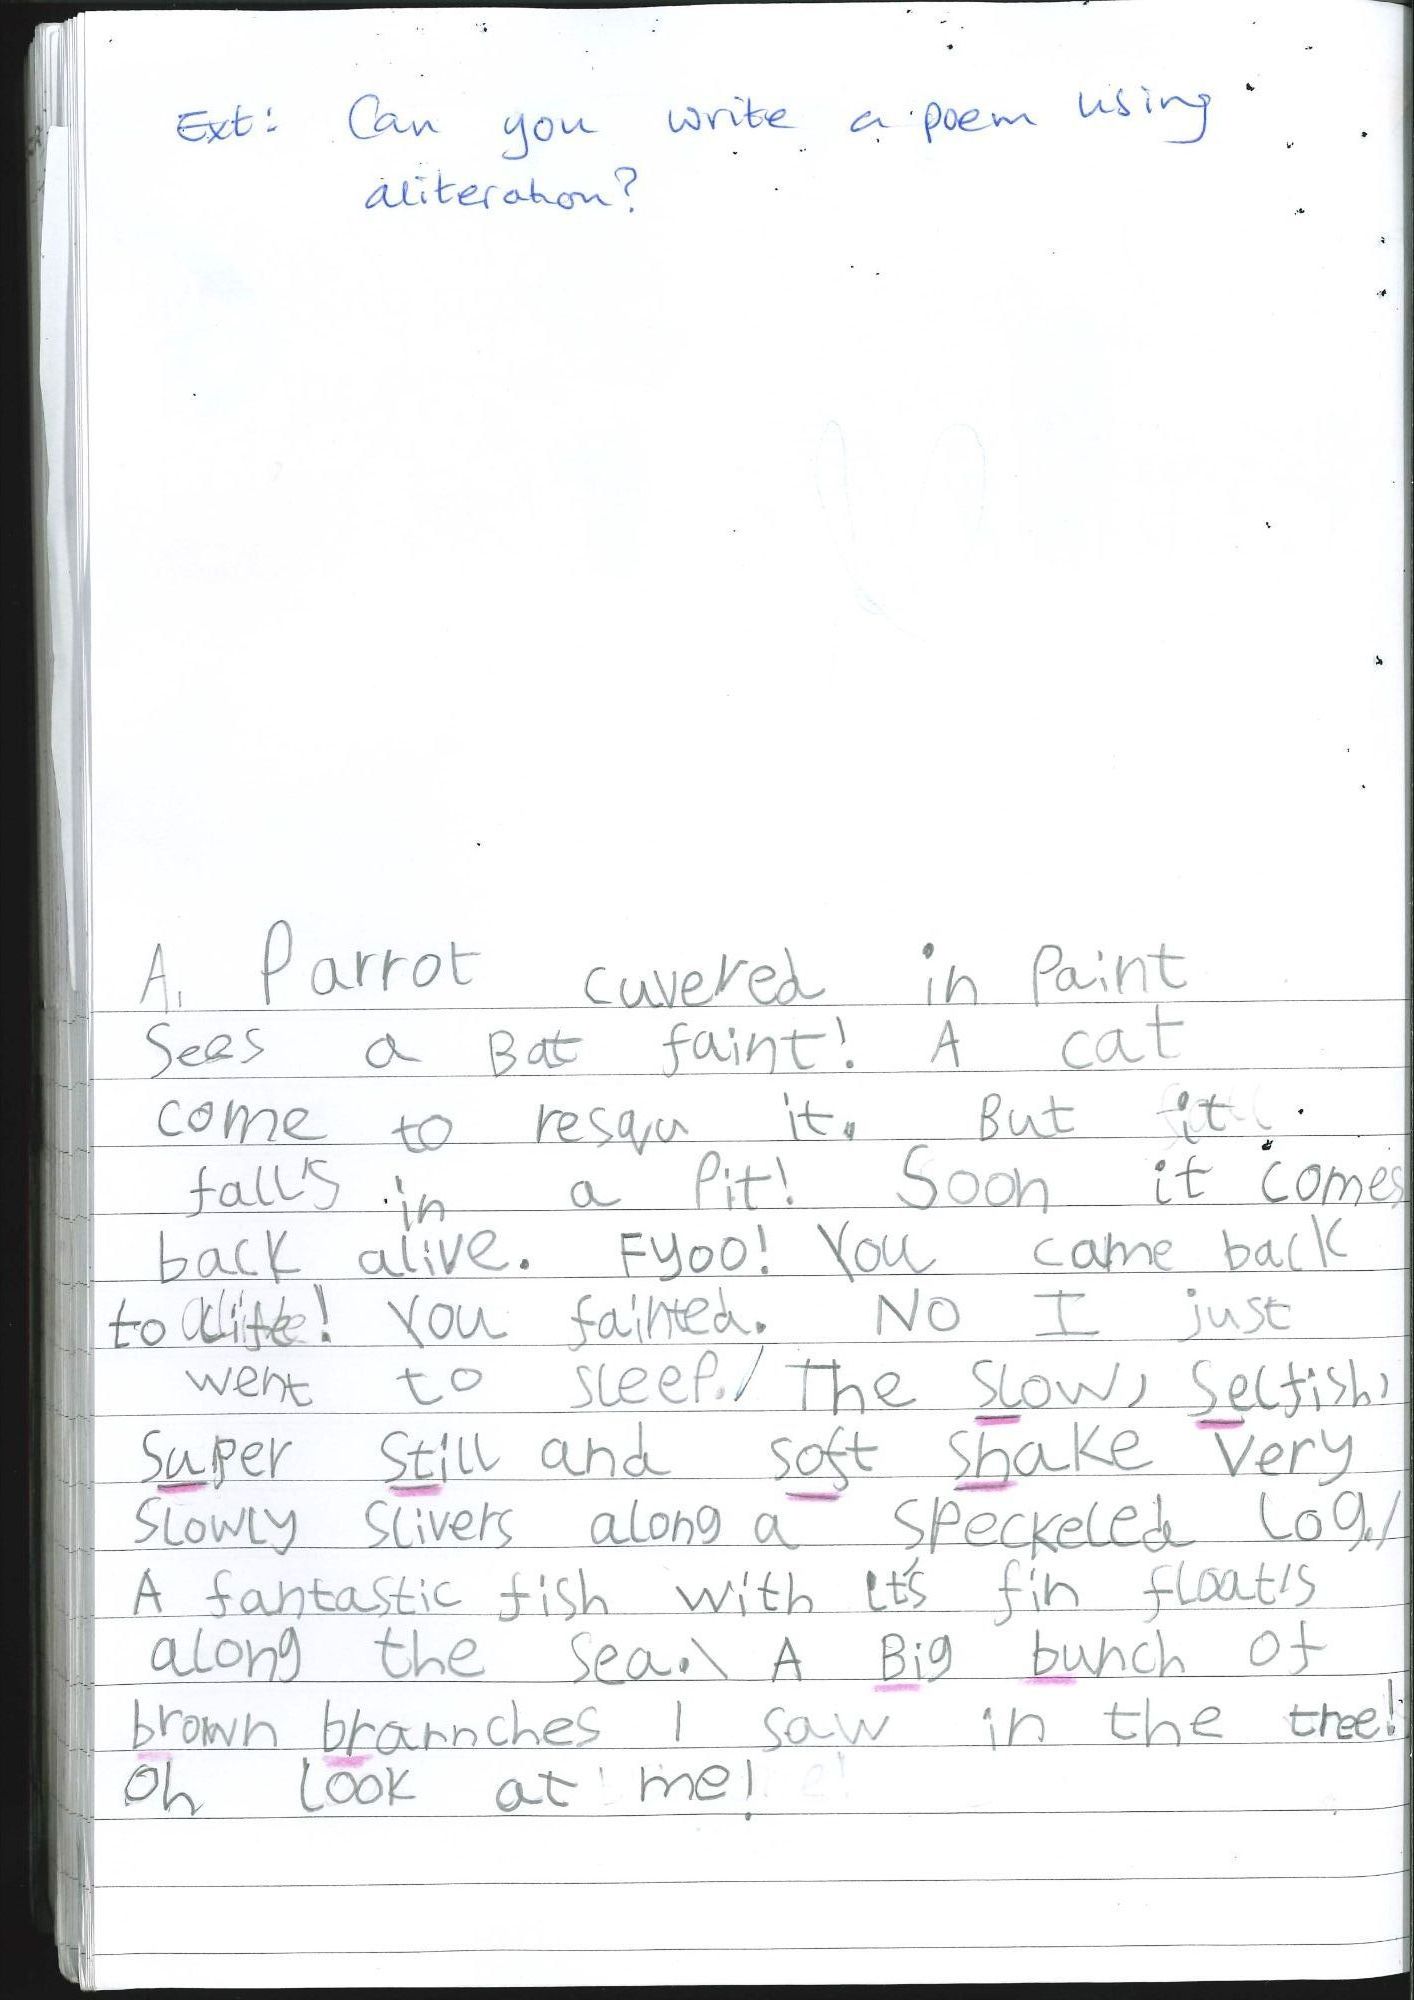 Ext: Can you write a poem using
aliteration?
A. Parrot cuvered in Paint
Sees a Bat faint! A cat
come to resqu it. But it
fall's in a Pit! Soon it comes
back alive. Fyoo! You came back
to life! You fainted. No I just
went to sleep./ The slow, selfish,
super still and soft shake very
slowly slivers along a speckeled log./
A fantastic fish with it's fin float's
along the sea.\ A Big bunch of
brown brannches I saw in the tree!
Oh look at me!